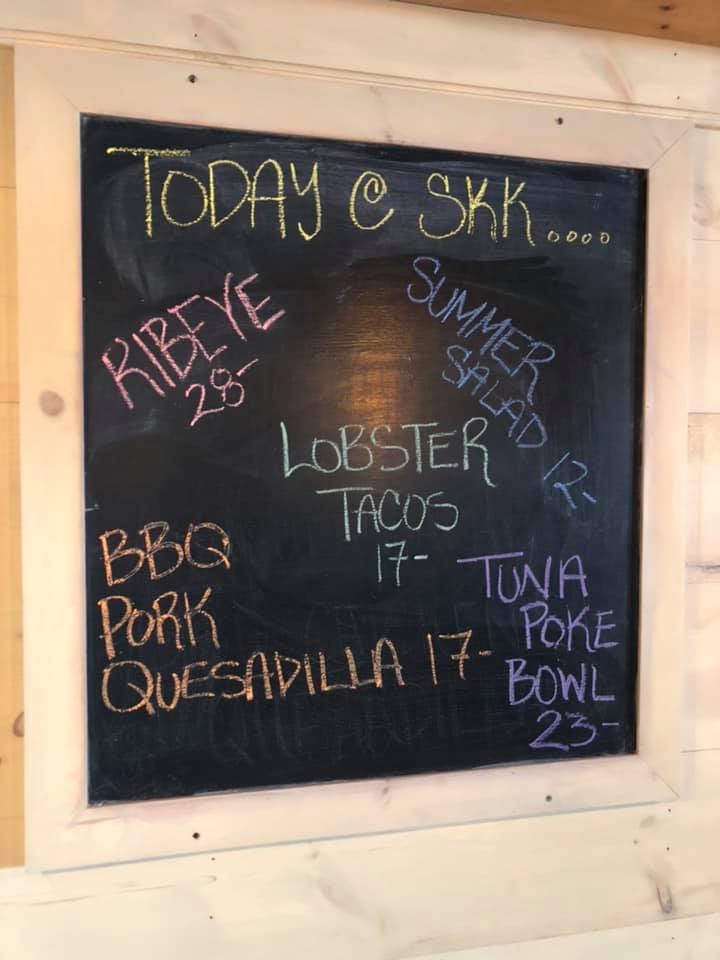 TODAY @ SKK....
RIBEYE
28-
SUMMER
SALAD 12-
LOBSTER
TACOS
17-
BBQ
PORK
QUESADILLA 17-
TUNA
POKE
BOWL
23-